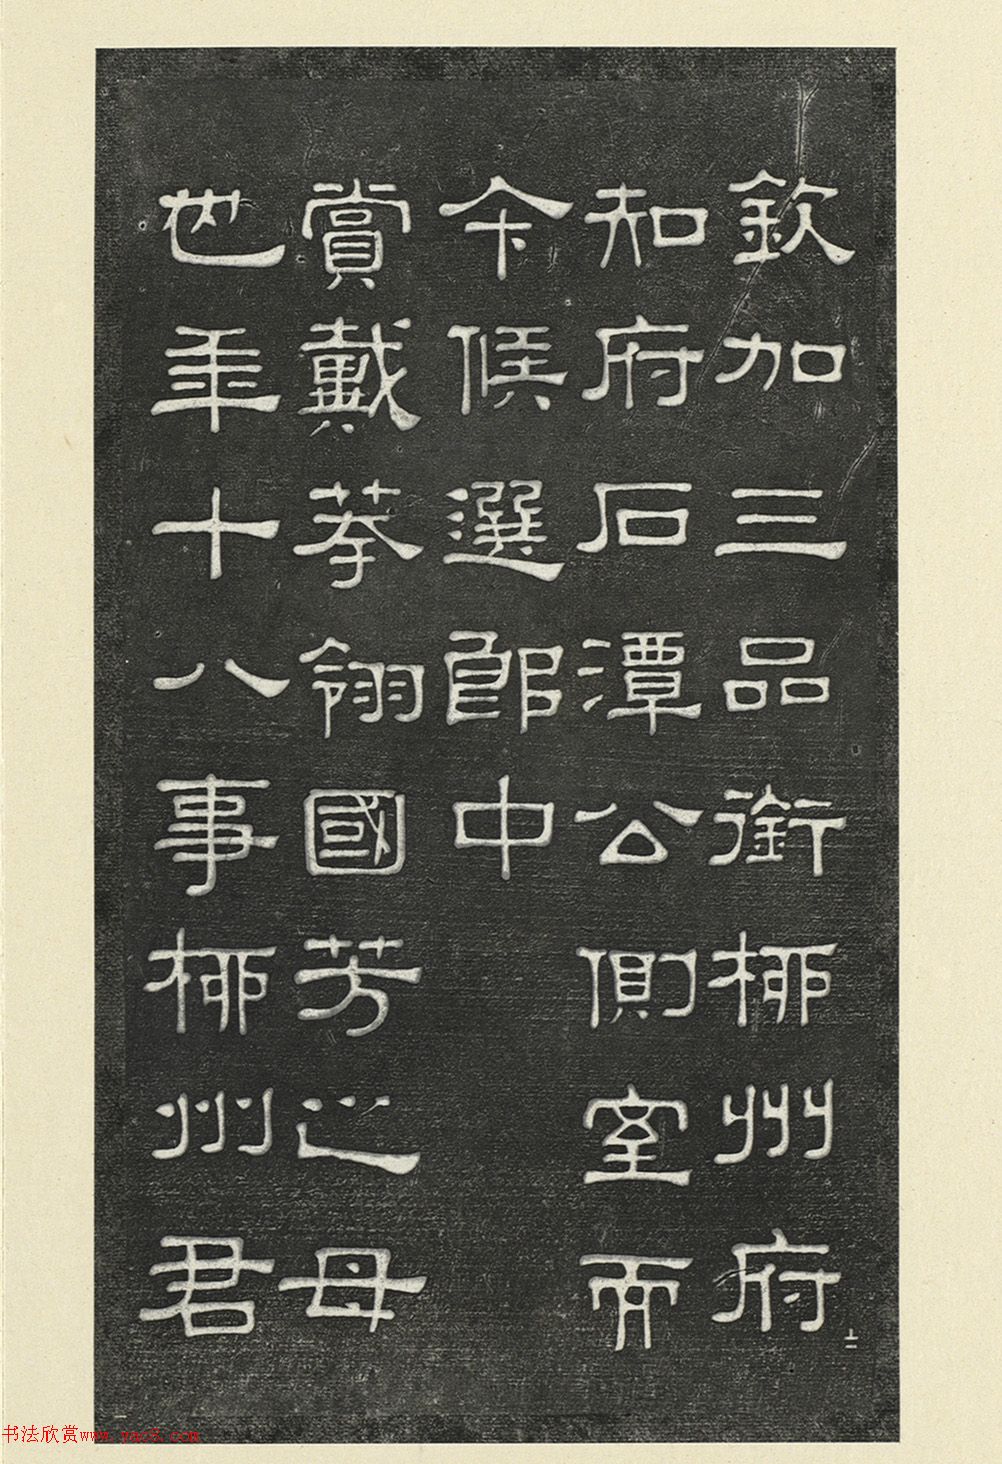 欽加三品銜桺州府
知府石潭公側室而
今候選郎中
賞戴花翎國芳之母
也年十八事桺州君
上二
书法欣赏www.yac8.com